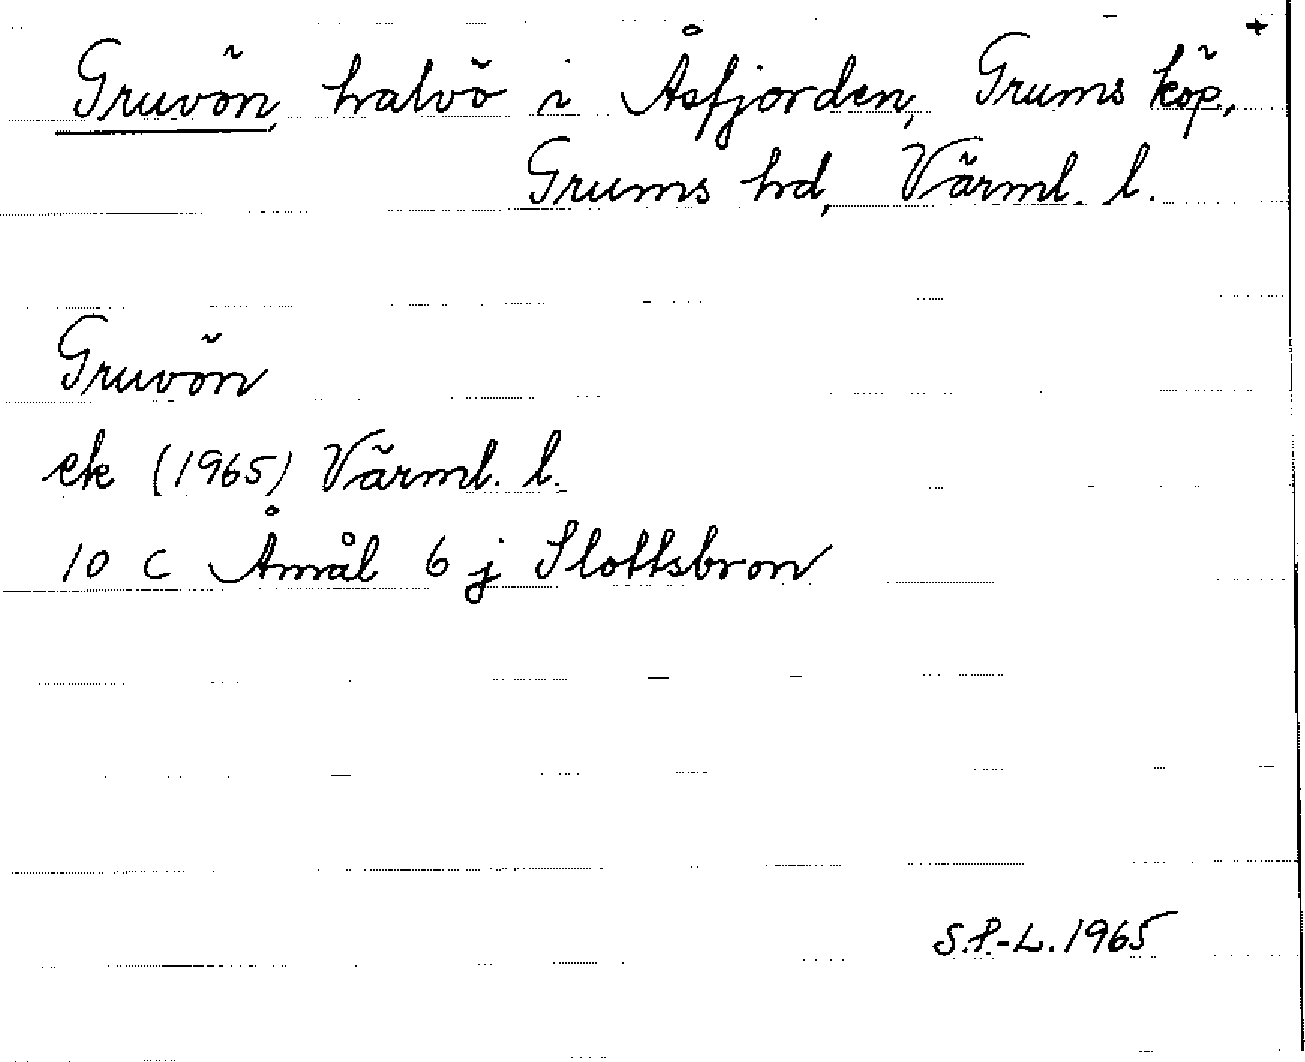 Gruvön, halvö i Åsfjorden, Grums köp, +
Grums hd, Värml. l.
Gruvön
ek (1965) Värml. l.
10 C Åmål 6 j Slottsbron
S.P.-L. 1965